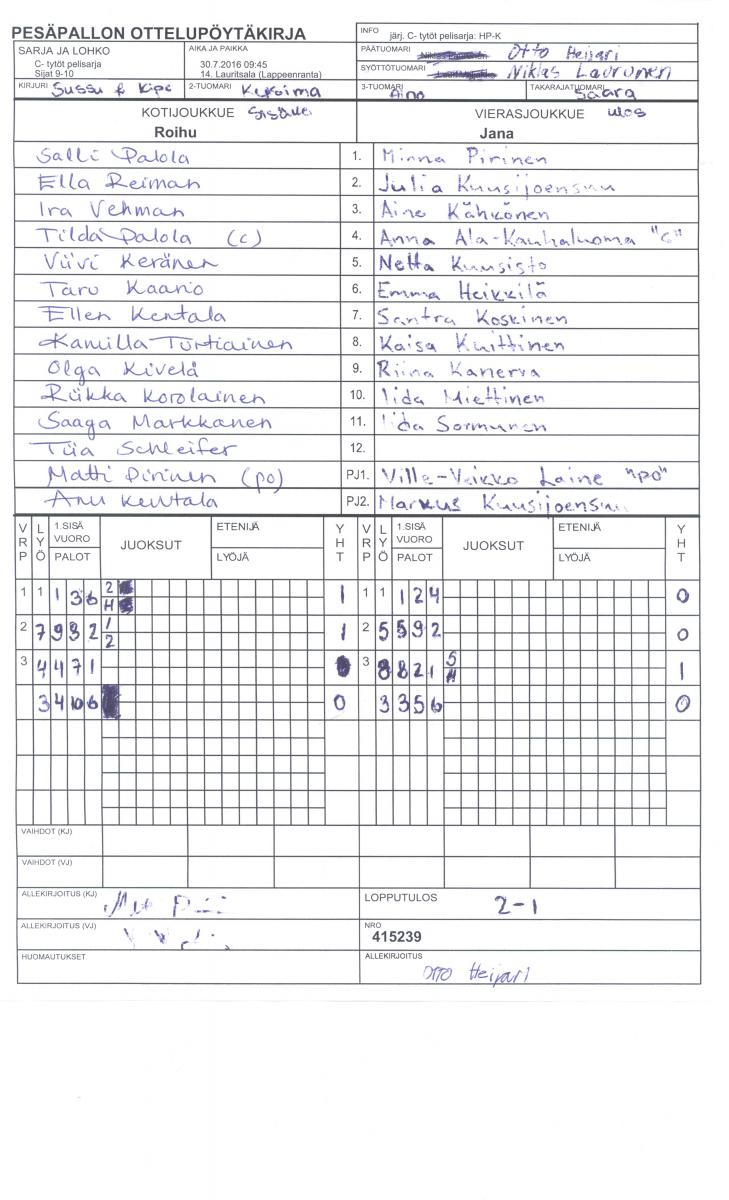 PESÄPALLON OTTELUPÖYTÄKIRJA
INFO järj. C- tytöt pelisarja: HP-K
SARJA JA LOHKO
C- tytöt pelisarja
Sijat 9-10
AIKA JA PAIKKA
30.7.2016 09:45
14. Lauritsala (Lappeenranta)
PÄÄTUOMARI Otto Heijari
SYÖTTÖTUOMARI Niklas Lavronen
KIRJURI Sussu & Kipe
2-TUOMARI
3-TUOMARI Aino
TAKARAJATUOMARI Saara
KOTIJOUKKUE
Roihu
VIERASJOUKKUE ulos
Jana
Salli Palola 1. Minna Pirinen
Ella Reiman 2. Julia Kuusijoensuu
Ira Vehman 3. Aino Kähkönen
Tilda Palola (c) 4. Anna Ala-Kauhaluoma "C"
Viivi Keränen 5. Netta Kuusisto
Taru Kaario 6. Emma Heikkilä
Ellen Kentala 7. Santra Koskinen
Kamilla Turtiainen 8. Kaisa Kuittinen
Olga Kivelä 9. Riina Kanerva
Riikka Korolainen 10. Iida Miettinen
Saaga Markkanen 11. Iida Sormunen
Tiia Schleifer 12.
Matti Pirinen (po) PJ1. Ville-Veikko Laine "po"
Anu Kentala PJ2. Markus Kuusijoensuu
VRP LYÖ 1.SISÄ VUORO PALOT JUOKSUT ETENIJÄ LYÖJÄ YHT VRP LYÖ 1.SISÄ VUORO PALOT JUOKSUT ETENIJÄ LYÖJÄ YHT
1 1 1 3 6 2 H 1 1 1 1 2 4 0
2 7 9 3 2 1 2 1 2 5 5 9 2 0
3 4 4 7 1 3 8 8 2 1 5 H 1
3 4 10 6 0 3 3 5 6 0
VAIHDOT (KJ)
VAIHDOT (VJ)
ALLEKIRJOITUS (KJ)
LOPPUTULOS 2-1
ALLEKIRJOITUS (VJ)
NRO
415239
HUOMAUTUKSET
ALLEKIRJOITUS
Otto Heijari